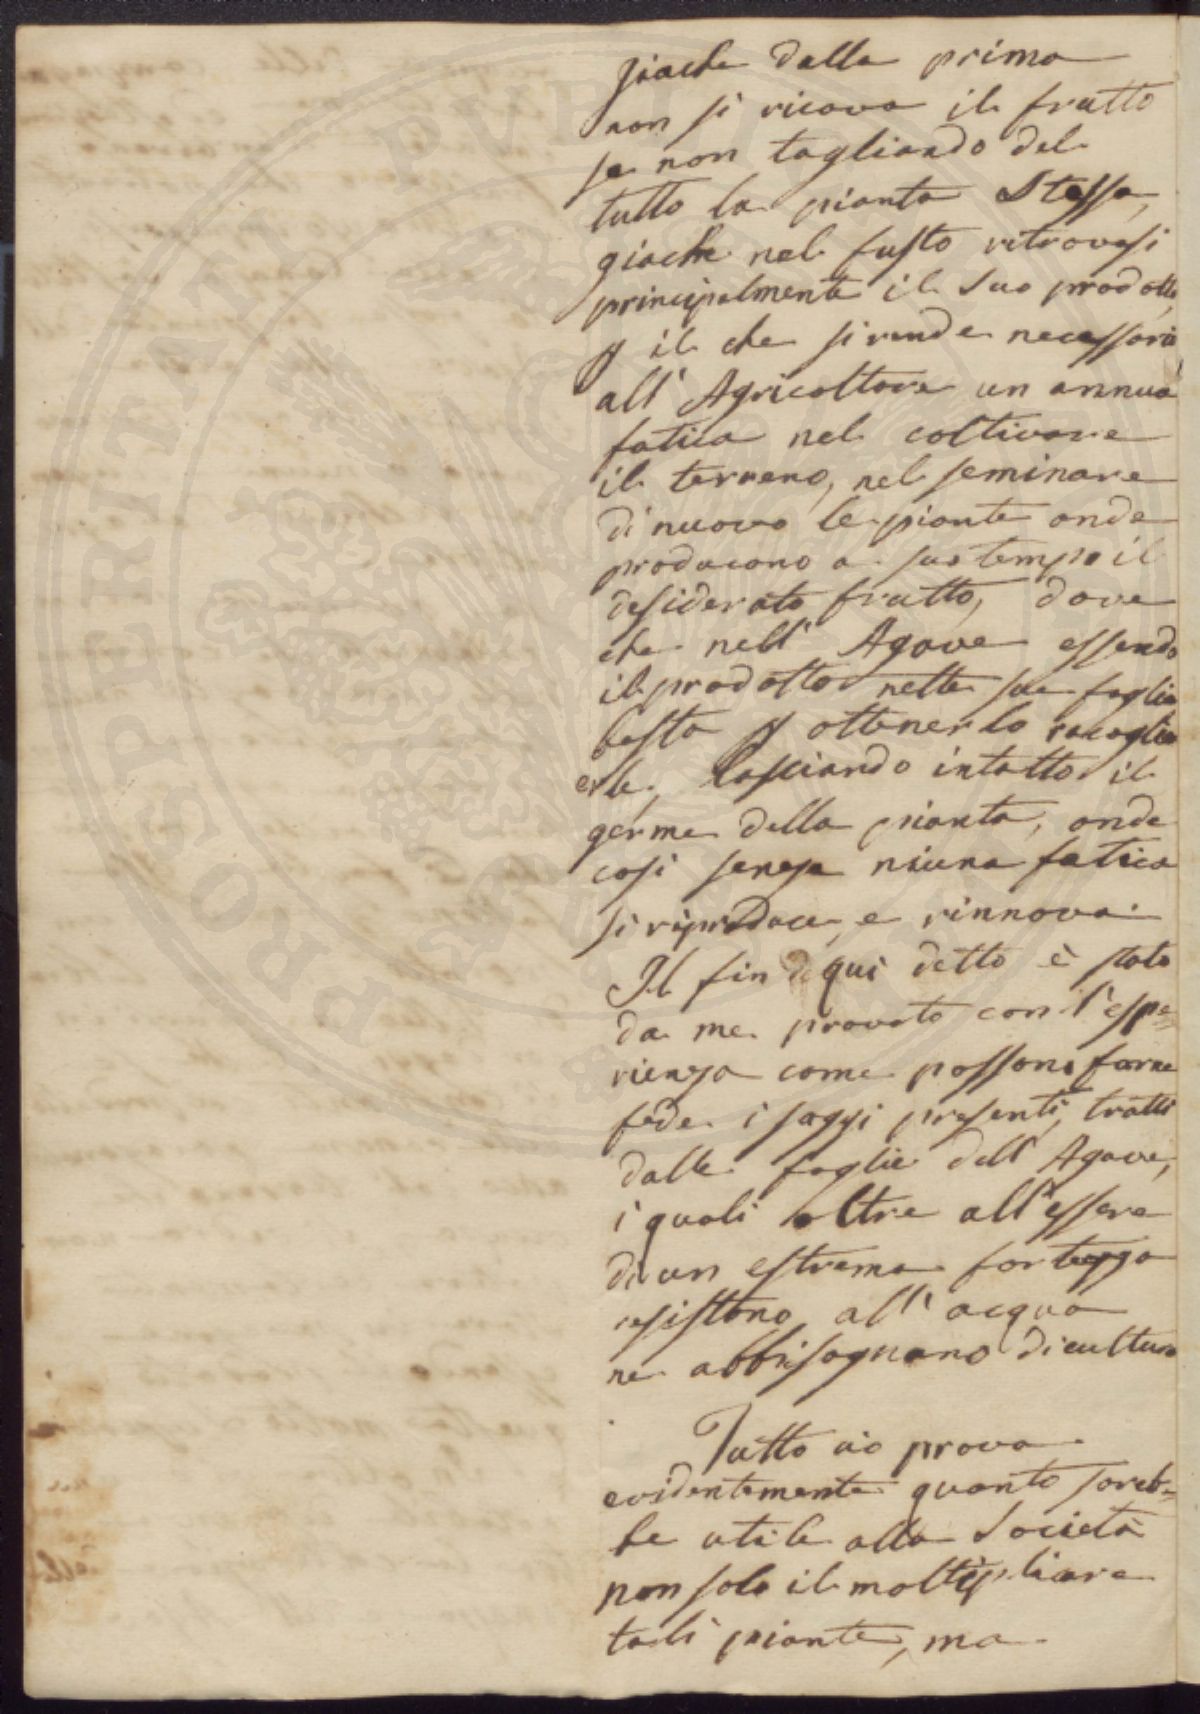 giache dalla prima
non si ricava il frutto
se non tagliando del
tutto la pianta stessa,
giache nel fusto ritrovasi
principalmente il suo prodotto,
il che si rende necessaria
all' Agricoltore un annua
fatica nel coltivare
il terreno, nel seminare
di nuovo le piante onde
producono a suo tempo il
desiderato frutto, dove
che nell' Agave essendo
il prodotto nelle sue foglie
basta ottenerlo racoglie
erle, lasciando intatto il
germe della pianta, onde
cosi senza niuna fatica
si riproduce, e rinnova.
Il fin qui detto è stato
da me provato con l'espe=
rienza come possono farne
fede i saggi presenti, tratti
dalle foglie dell' Agave,
i quali oltre all'essere
di un estrema fortezza
resistono all' acqua
ne abbisognano di cultura
Tutto ciò prova
evidentemente quanto sareb=
be utile alla Società
non solo il moltipliare
tali piante, ma
PROSPERITATI PVBLICAE